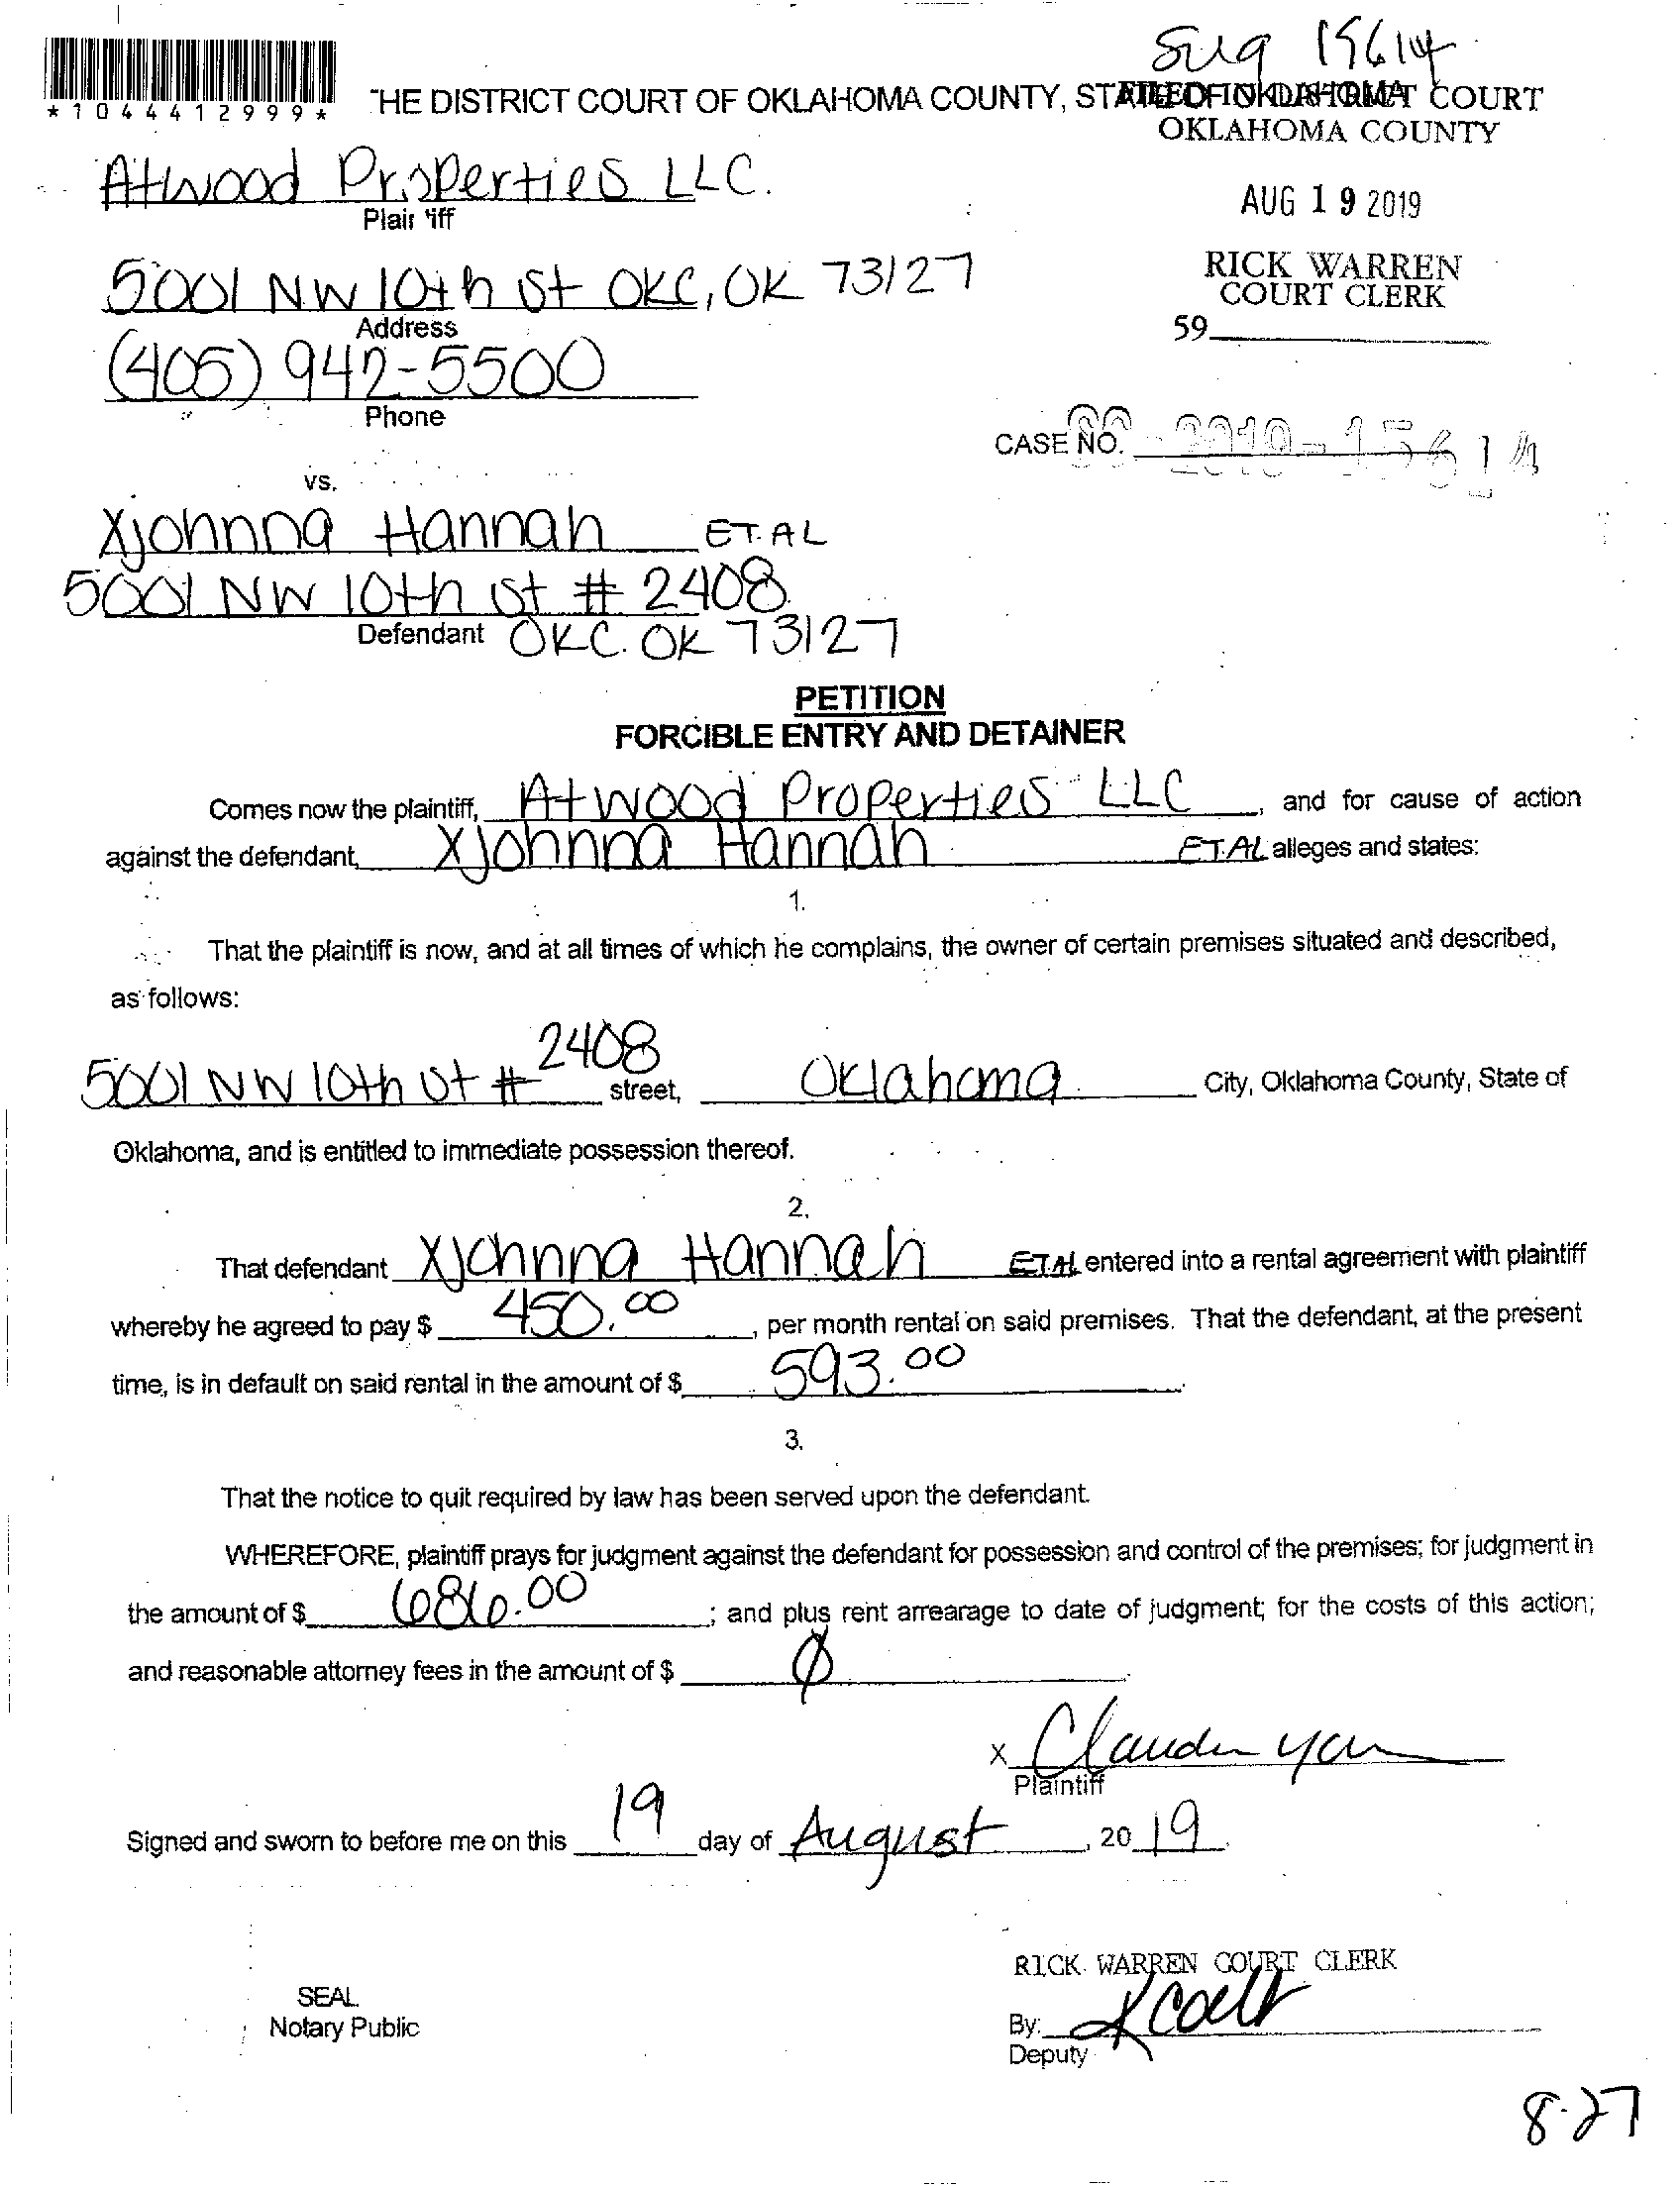 *1044412999*
THE DISTRICT COURT OF OKLAHOMA COUNTY, STATE OF OKLAHOMA
FILED IN DISTRICT COURT
OKLAHOMA COUNTY
Atwood Properties LLC.
Plaintiff
AUG 19 2019
5001 NW 10th St OKC, OK 73127
Address
RICK WARREN
COURT CLERK
59
(405) 942-5500
Phone
CASE NO.
vs.
Xjohnna Hannah ET.AL
5001 NW 10th St # 2408
Defendant OKC. OK 73127
PETITION
FORCIBLE ENTRY AND DETAINER
Comes now the plaintiff, Atwood Properties LLC, and for cause of action
against the defendant, Xjohnna Hannah ET.AL alleges and states:
1.
That the plaintiff is now, and at all times of which he complains, the owner of certain premises situated and described,
as follows:
5001 NW 10th St # 2408 street, Oklahoma City, Oklahoma County, State of
Oklahoma, and is entitled to immediate possession thereof.
2.
That defendant Xjohnna Hannah ET.AL entered into a rental agreement with plaintiff
whereby he agreed to pay $ 450.00, per month rental on said premises. That the defendant, at the present
time, is in default on said rental in the amount of $ 593.00.
3.
That the notice to quit required by law has been served upon the defendant.
WHEREFORE, plaintiff prays for judgment against the defendant for possession and control of the premises; for judgment in
the amount of $ 686.00; and plus rent arrearage to date of judgment; for the costs of this action;
and reasonable attorney fees in the amount of $ Ø.
x
Plaintiff
Signed and sworn to before me on this 19 day of August, 2019.
RICK WARREN COURT CLERK
SEAL
Notary Public
By:
Deputy
8-27